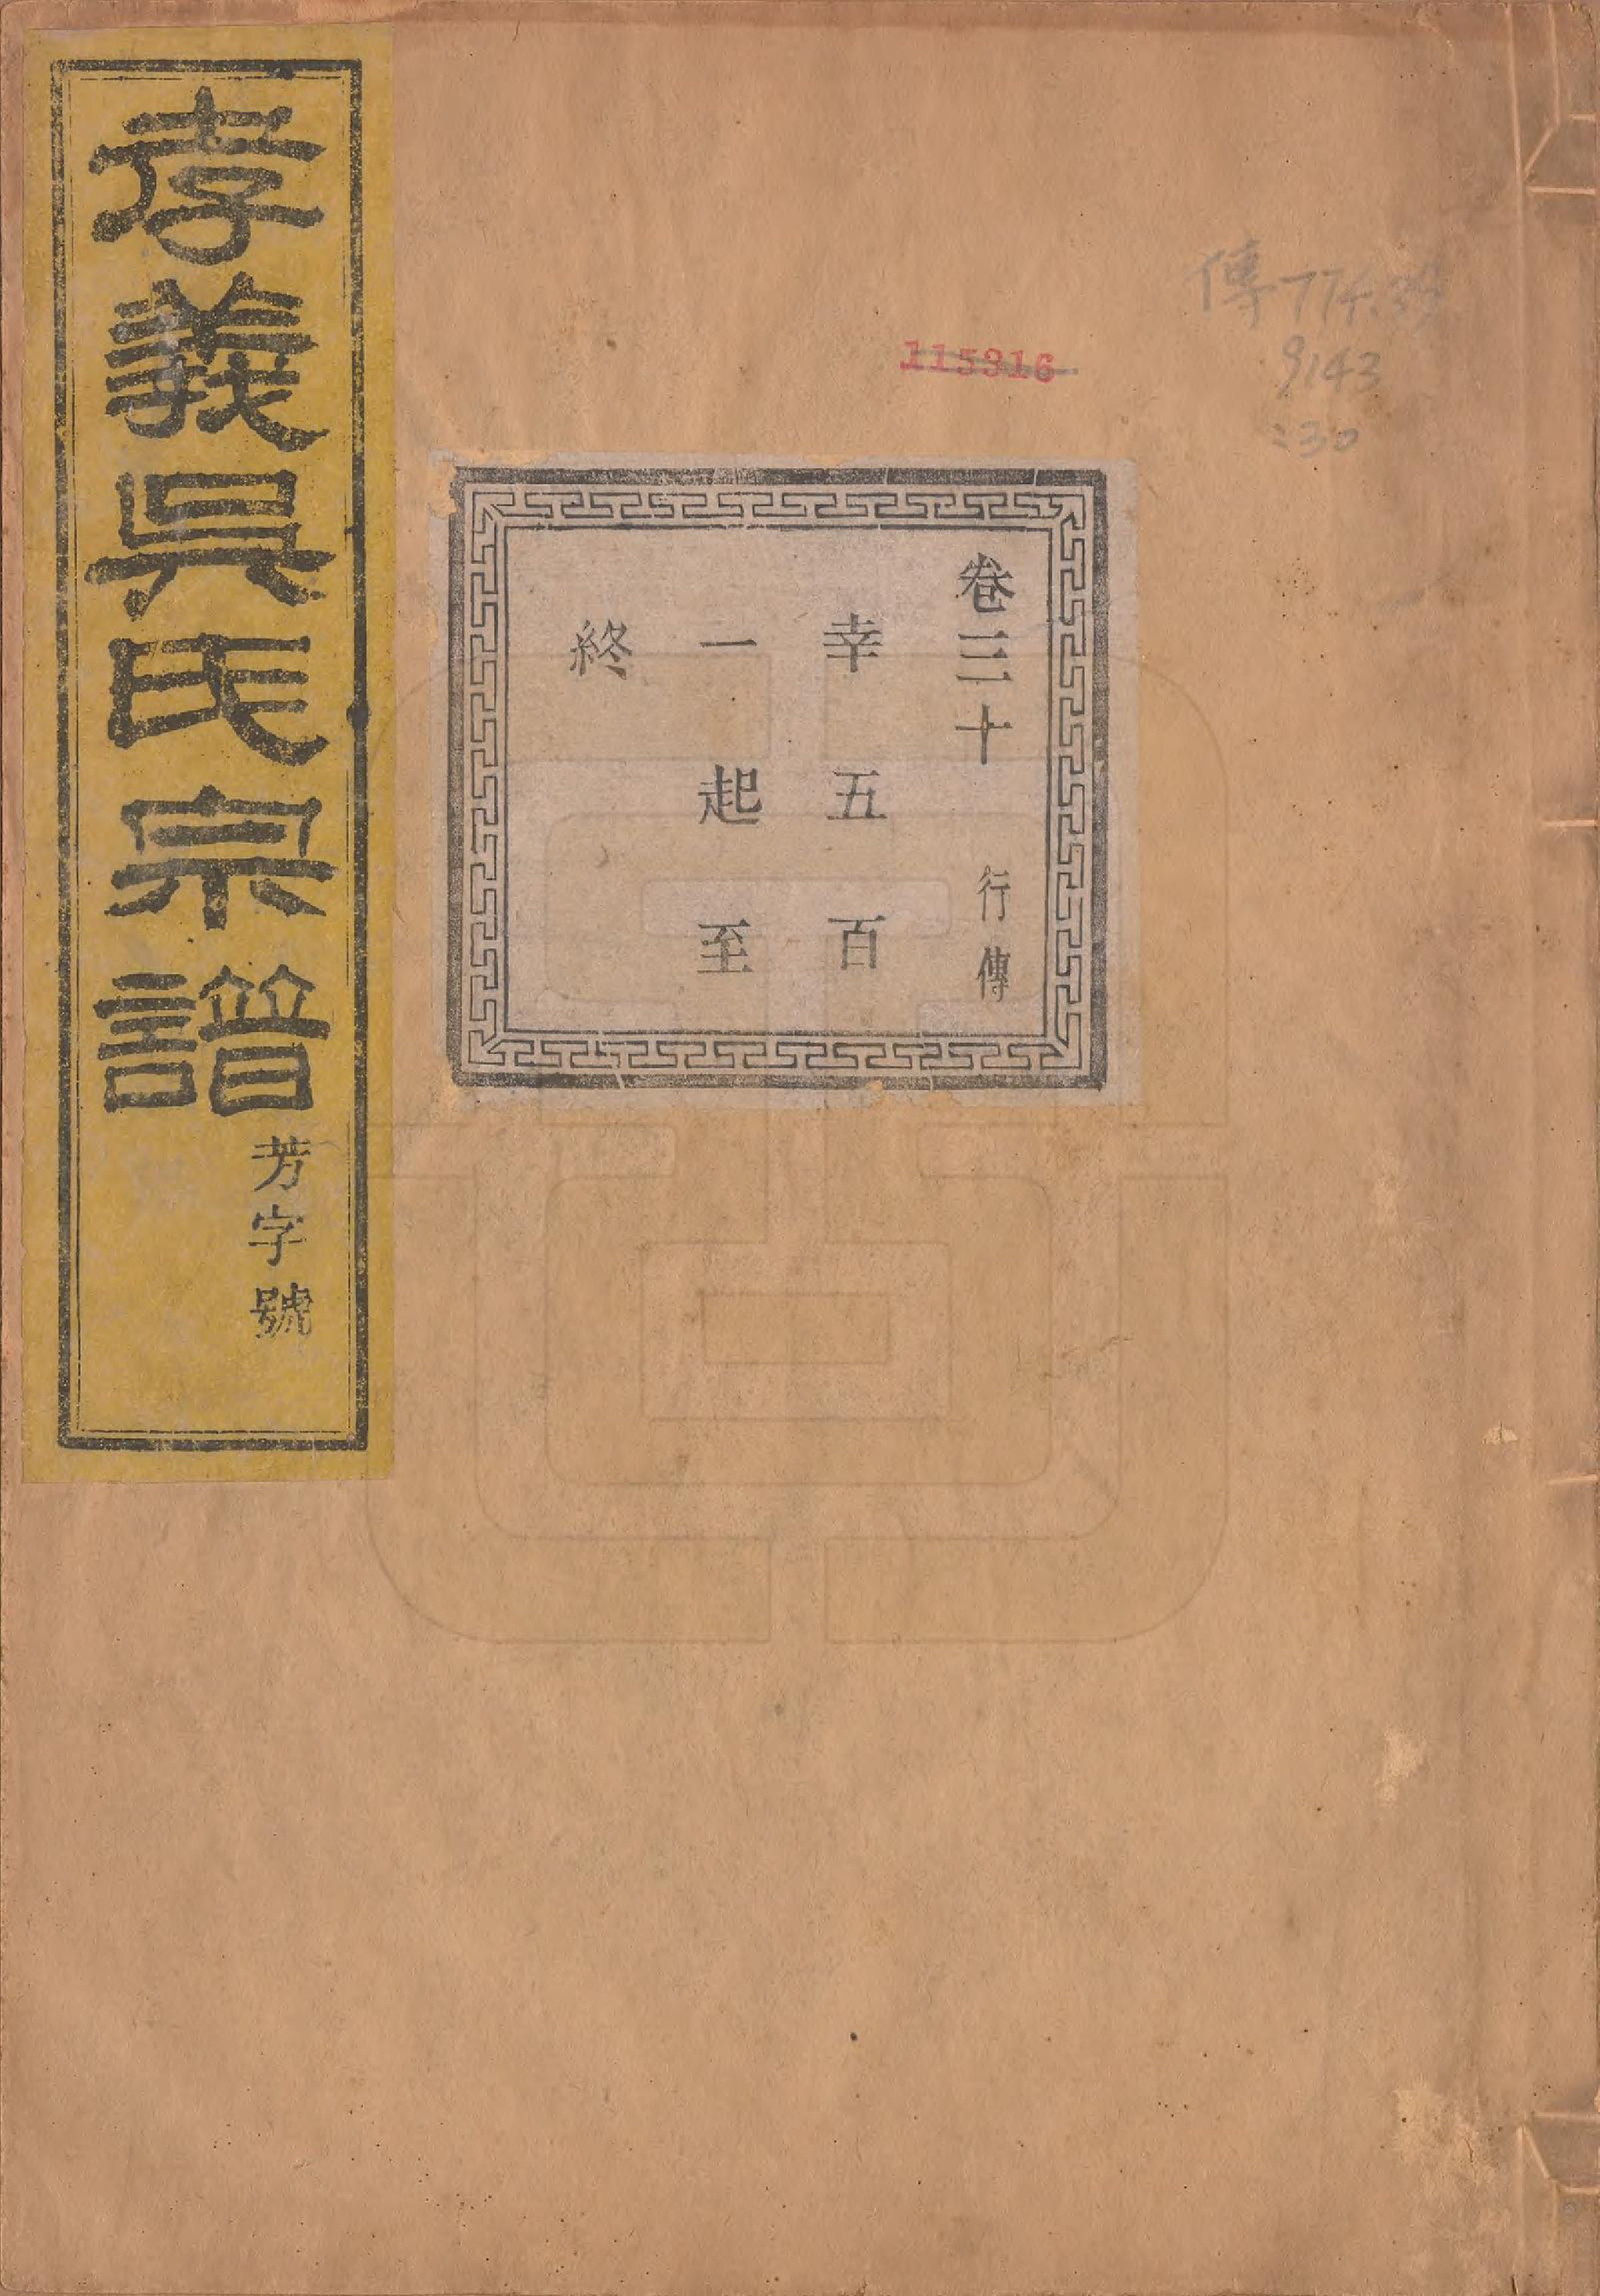 孝義吳氏宗譜
芳字號
卷三十 行傳
幸五百
一起至
終
115316
傳
9143
:30